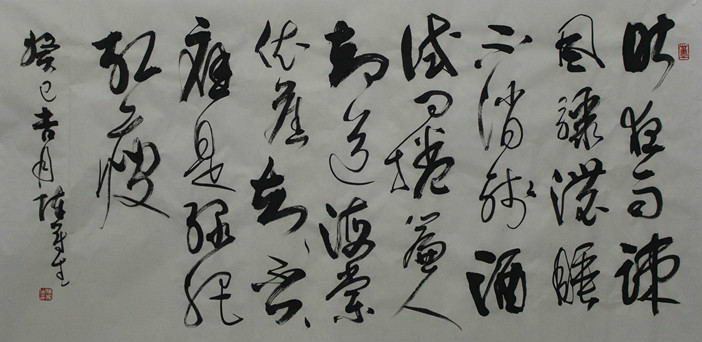 昨夜雨疎
風驟濃睡
不消殘酒
試問捲簾人
却道海棠
依舊知否
應是綠肥
紅瘦
癸巳吉月